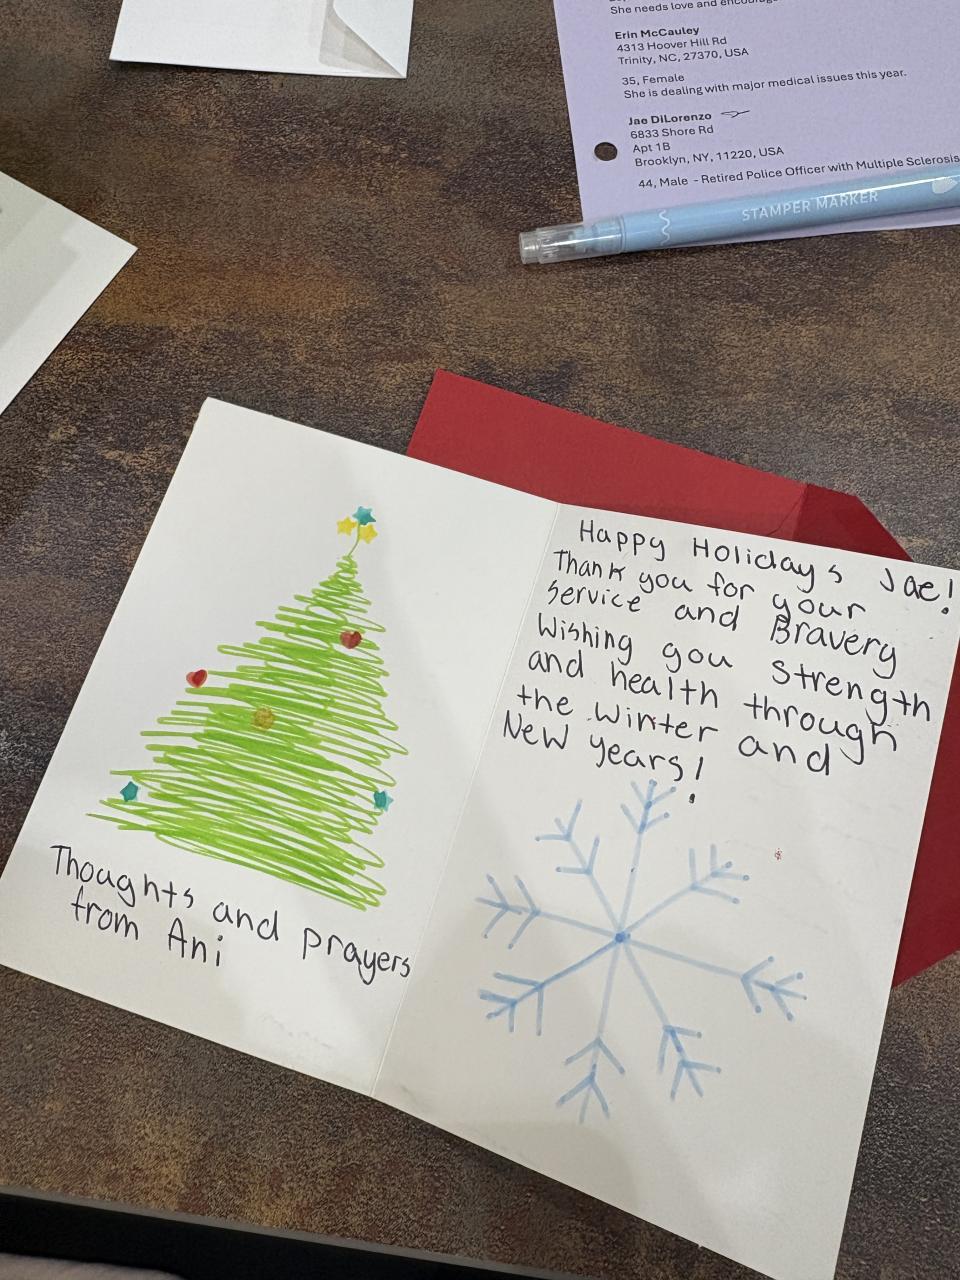 She needs love and
Erin McCauley
4313 Hoover Hill Rd
Trinity, NC, 27370, USA
35, Female
She is dealing with major medical issues this year.
Jae DiLorenzo
6833 Shore Rd
Apt 1B
Brooklyn, NY, 11220, USA
44, Male - Retired Police Officer with Multiple Sclerosis
STAMPER MARKER
Thoughts and prayers
from Ani
Happy Holidays Jae!
Thank you for your
service and Bravery
Wishing you strength
and health through
the Winter and
New years!